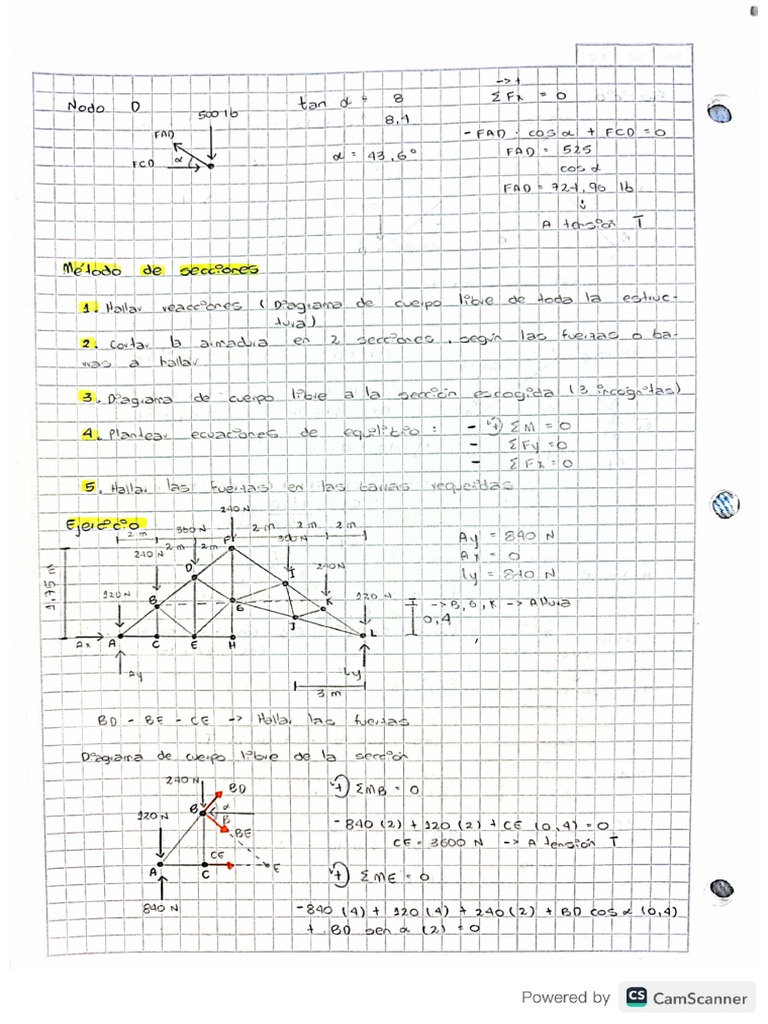 Nodo D
500 lb
FAD
FCD
α
tan α = 8
8,4
α = 43,6°
→+
ΣFx = 0
-FAD · cos α + FCD = 0
FAD = 525
cos α
FAD = 724,96 lb
↓
A tensión T
Método de secciones
1. Hallar reacciones (Diagrama de cuerpo libre de toda la estruc-
tura)
2. Cortar la armadura en 2 secciones, según las fuerzas o ba-
rras a hallar
3. Diagrama de cuerpo libre a la sección escogida (3 incógnitas)
4. Plantear ecuaciones de equilibrio: - +) ΣM = 0
- ΣFy = 0
- ΣFx = 0
5. Hallar las fuerzas en las barras requeridas
Ejercicio
240 N
2 m
2 m
2 m
2 m
2 m
2 m
240 N
240 N
120 N
120 N
1,75 m
A
B
C
D
E
F
G
H
I
J
K
L
Ax
Ay
Ly
3 m
Ay = 840 N
Ax = 0
Ly = 840 N
→ B, G, K → Altura
0,4
BD - BE - CE → Hallar las fuerzas
Diagrama de cuerpo libre de la sección
240 N
BD
B
α
β
BE
120 N
CE
A
C
E
840 N
+) ΣMB = 0
-840 (2) + 120 (2) + CE (0,4) = 0
CE = 3600 N → A tensión T
+) ΣME = 0
-840 (4) + 120 (4) + 240 (2) + BD cos α (0,4)
+ BD sen α (2) = 0
Powered by CS CamScanner